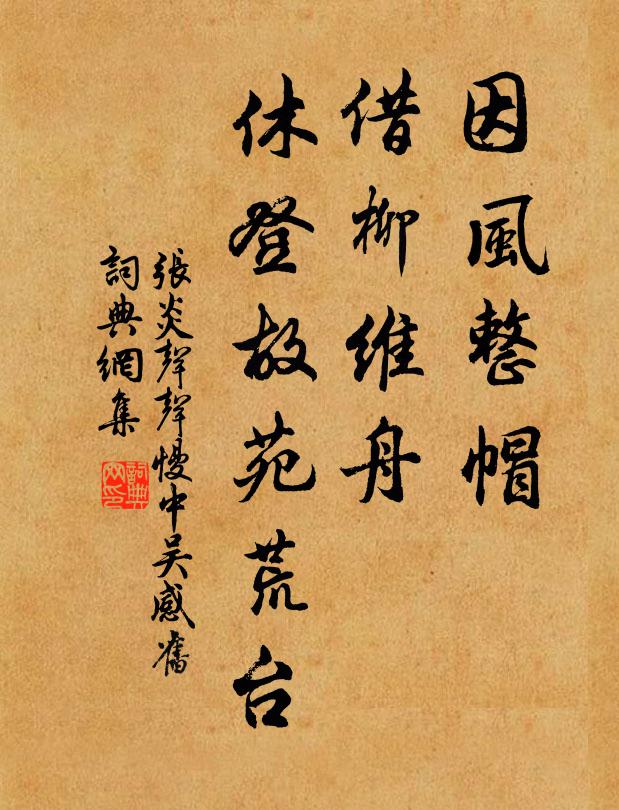 因風整帽
借柳維舟
休登故苑荒台
張炎聲聲慢中吳感舊
詞典網集
詞典網印